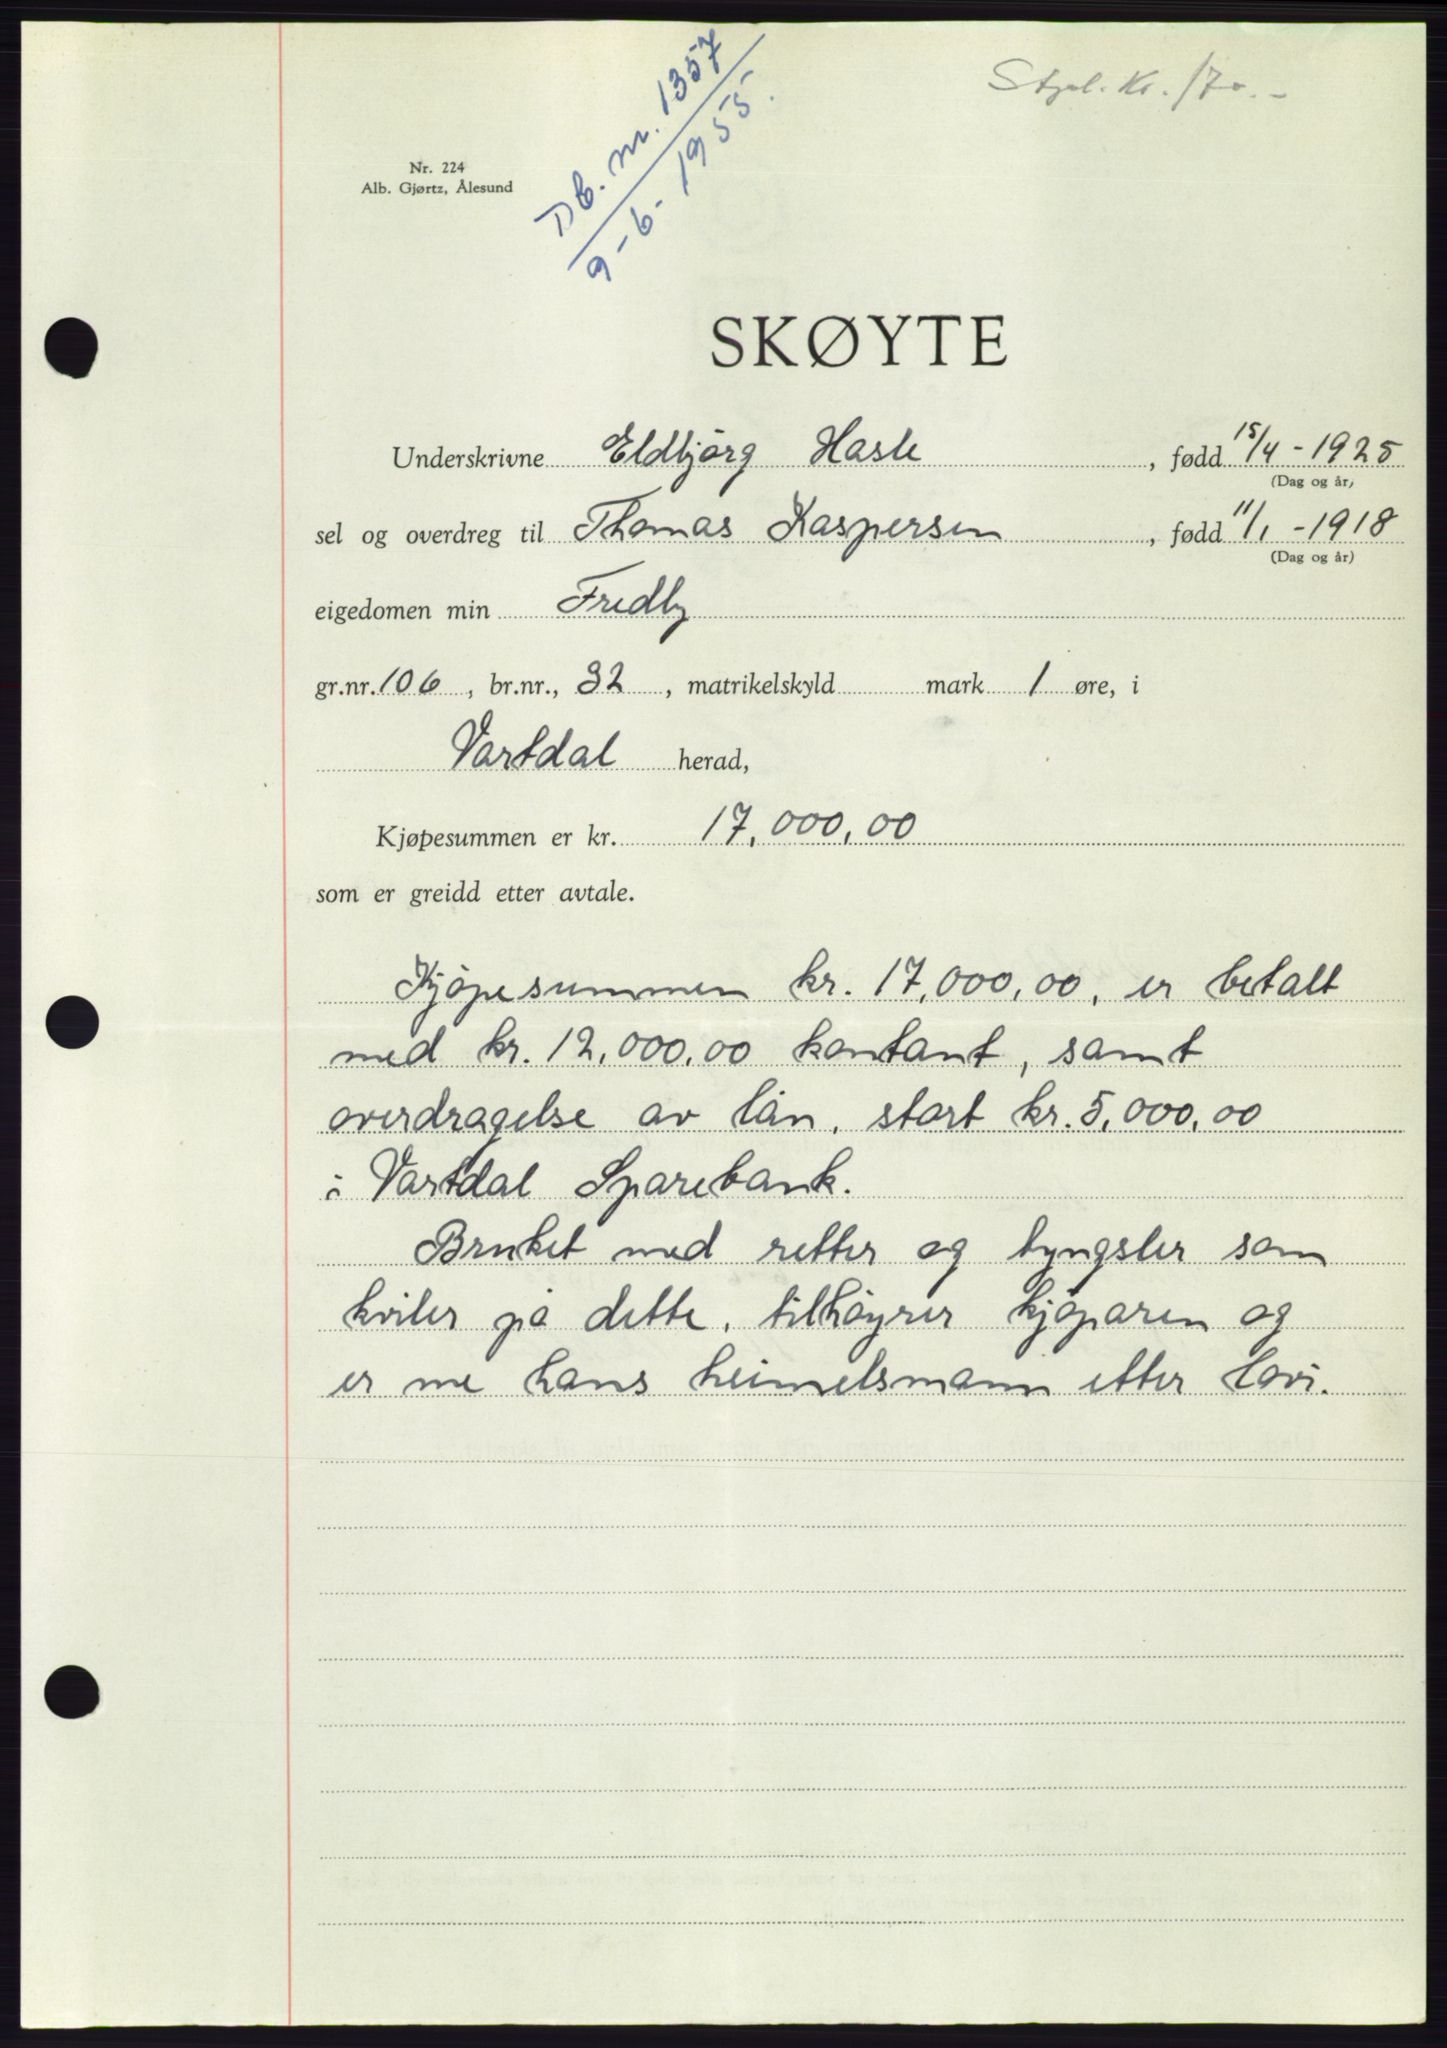 Db. nr. 1357
9-6-1955.
Stpl. Kr. 170.-
Nr. 224
Alb. Gjørtz, Ålesund
SKØYTE
Underskrivne Eldbjörg Hasle, fødd 15/4 - 1925
(Dag og år)
sel og overdreg til Thomas Kaspersen, fødd 11/1 - 1918
(Dag og år)
eigedomen min Fredly
gr.nr. 106, br.nr., 32, matrikelskyld mark 1 øre, i
Vartdal herad,
Kjøpesummen er kr. 17,000,00
som er greidd etter avtale.
Kjöpesummen kr. 17,000,00, er betalt
med kr. 12,000,00 kontant, samt
overdragelse av lån, stort kr. 5,000,00
i Vartdal Sparebank.
Bruket med retter og tyngsler som
kviler på dette, tilhöyrer kjöparen og
er me hans heimelsmann etter lovi.